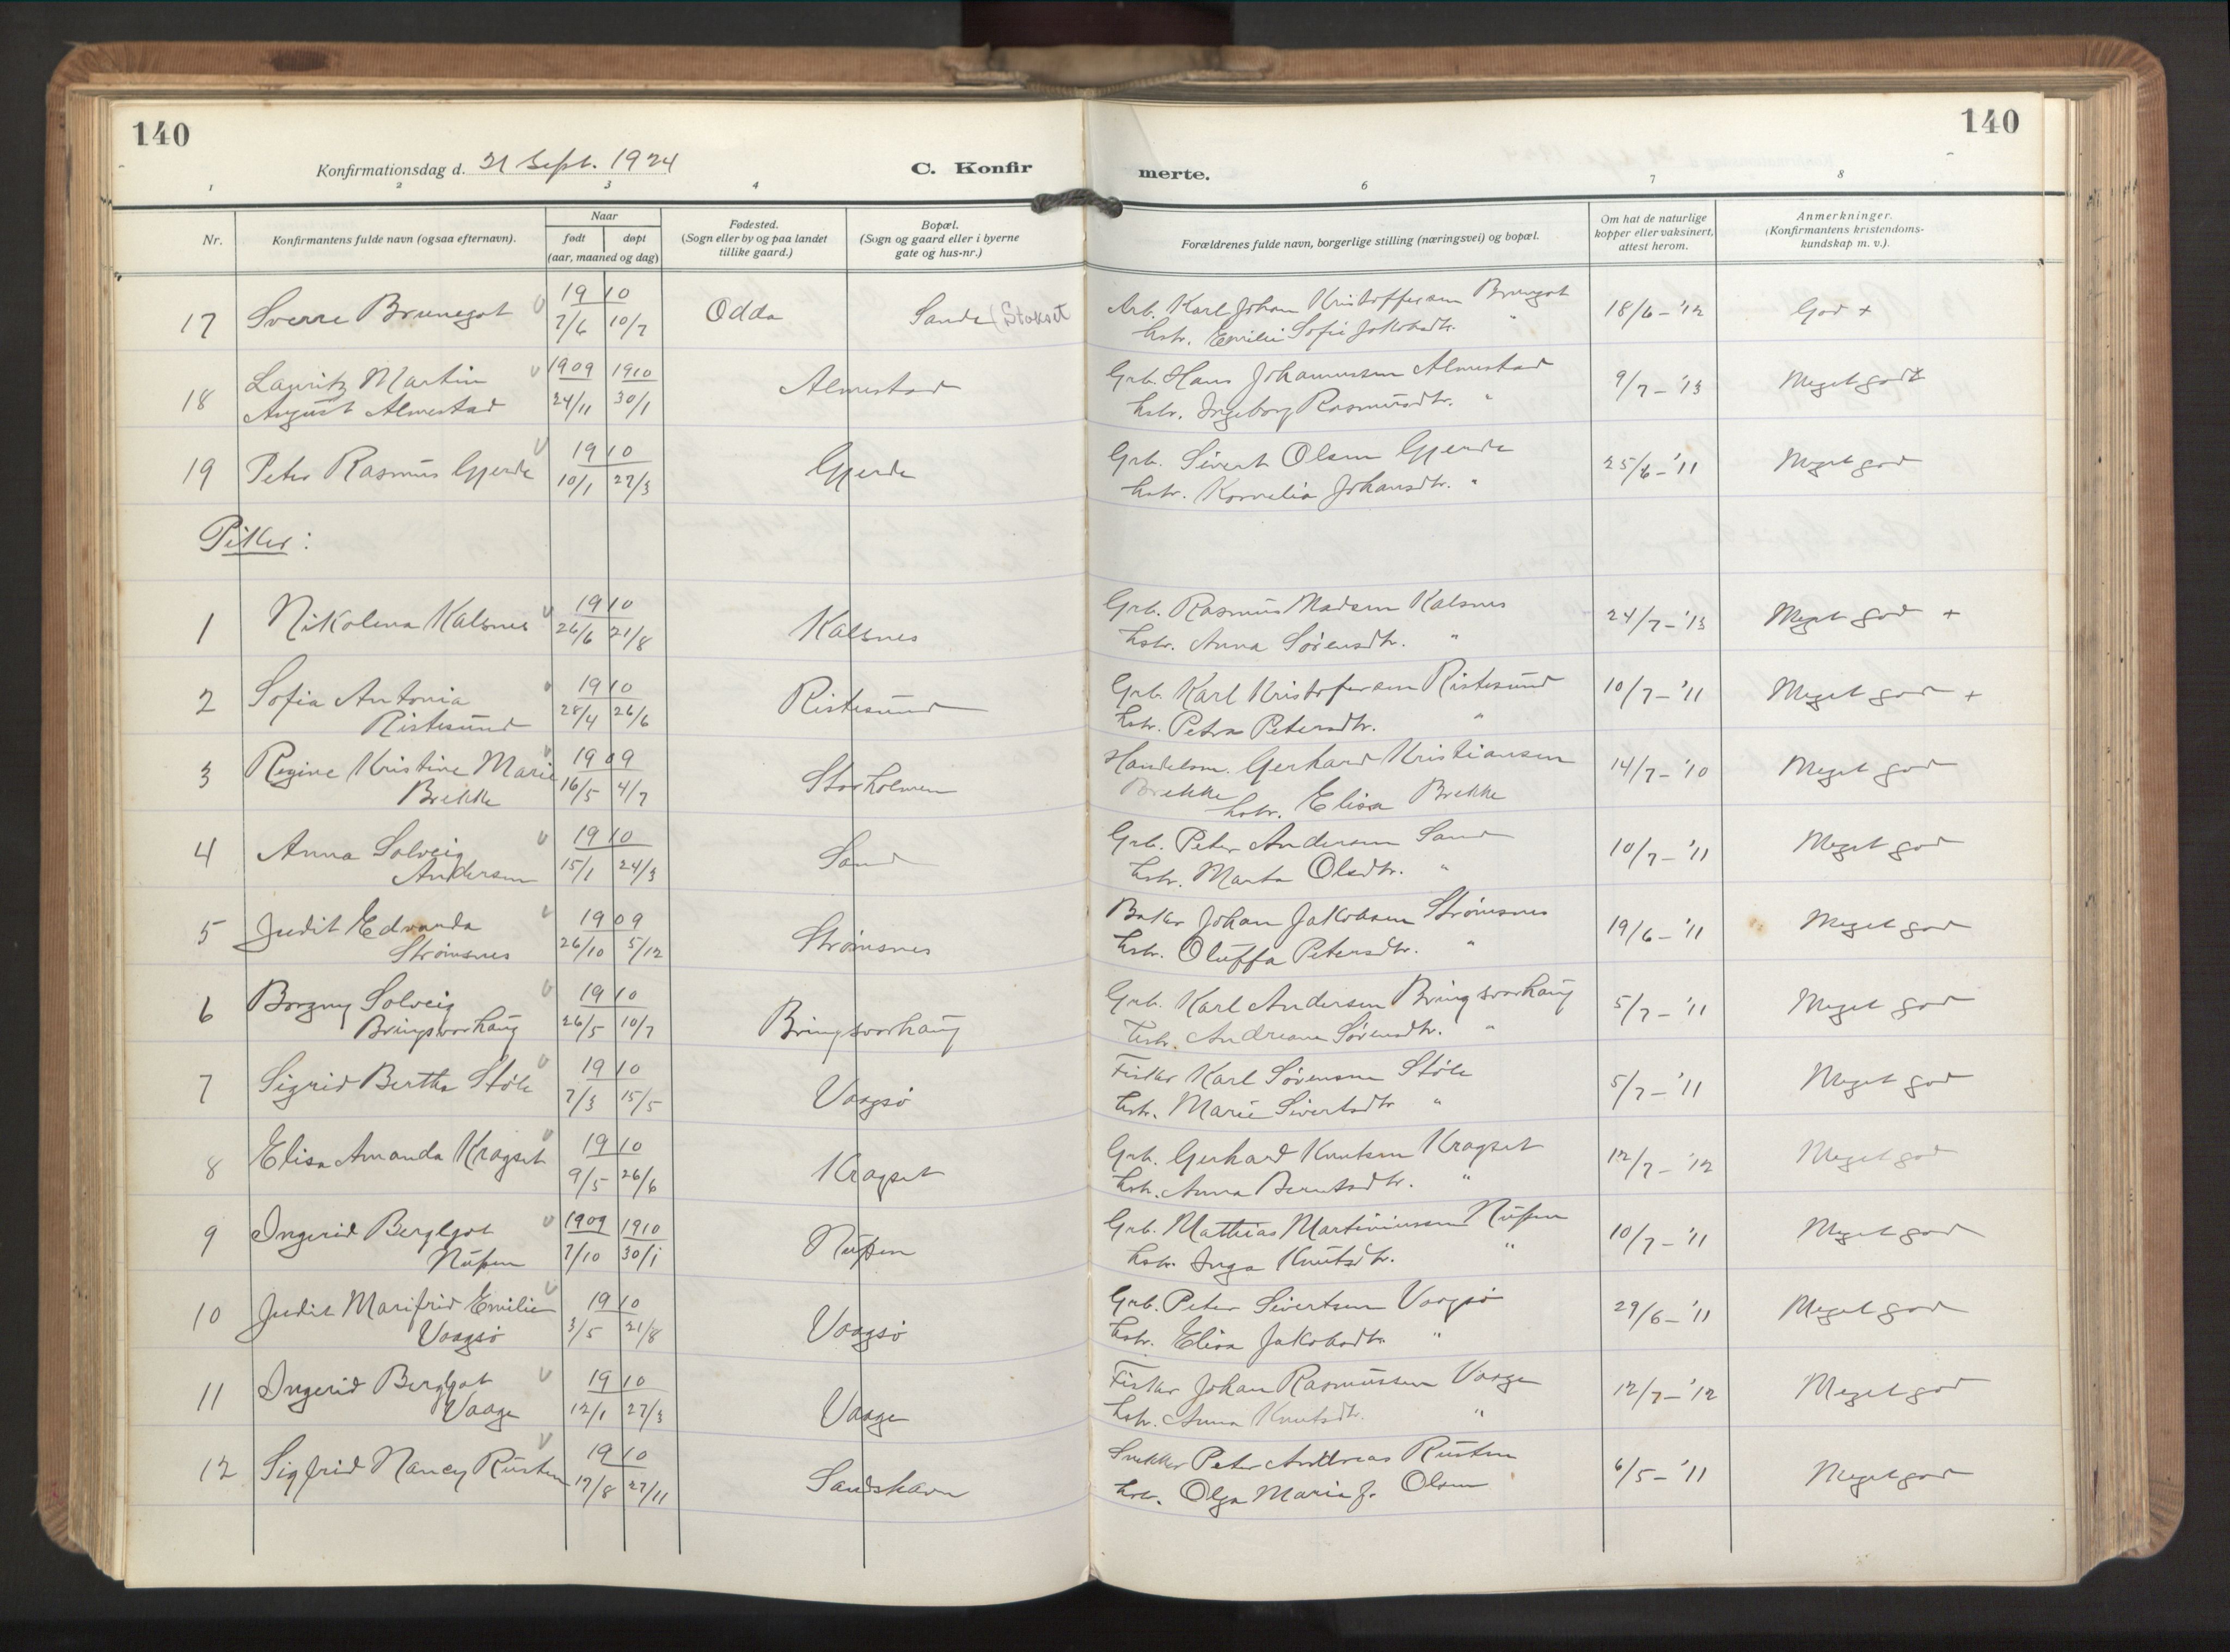 140
140
Konfirmationsdag d. 21 Sept. 1924
C. Konfir
merte.
1 2 3 4 6 7 8
Nr.
Konfirmantens fulde navn (ogsaa efternavn).
Naar
født døpt
(aar, maaned og dag)
Fødested.
(Sogn eller by og paa landet
tillike gaard.)
Bopæl.
(Sogn og gaard eller i byerne
gate og hus-nr.)
Forældrenes fulde navn, borgerlige stilling (næringsvei) og bopæl.
Om hat de naturlige
kopper eller vaksinert,
attest herom.
Anmerkninger.
(Konfirmantens kristendoms-
kundskap m. v.).
17 Sverre Brunegot 1910 7/6 10/7 Odda Sande (Stokset Arb. Karl Johan Kristoffersen Brunegot 18/6-'12 God +
hstr. Emilie Sofie Jakobsdtr. "
18 Lauritz Martin 1909 1910 Almestad Grb. Hans Johannessen Almestad 9/7-'13 Meget godt
August Almestad 24/11 30/1 hstr. Ingeborg Rasmusdtr. "
19 Peter Rasmus Gjerde 1910 10/1 27/3 Gjerde Grb. Sivert Olsen Gjerde 25/6-'11 Meget god
hstr. Kornelia Johansdtr. "
Piker:
1 Nikolena Kalsnes 1910 26/6 21/8 Kalsnes Grb. Rasmus Madsen Kalsnes 24/7-'13 Meget god +
hstr. Anna Sørensdtr. "
2 Sofia Antonia 1910 Ristesund Grb. Karl Kristofersen Ristesund 10/7-'11 Meget god +
Ristesund 28/4 26/6 hstr. Petra Petersdtr. "
3 Regine Kristine Marie 1909 Storholmen Handelsm. Gerhard Kristiansen 14/7-'10 Meget god
Brekke 16/5 4/7 Brekke hstr. Elisa Brekke
4 Anna Solveig 1910 Sand Grb. Peter Andersen Sand 10/7-'11 Meget god
Andersen 15/1 24/3 hstr. Marta Olsdtr. "
5 Judit Edvarda 1909 Strømsnes Baker Johan Jakobsen Strømsnes 19/6-'11 Meget god
Strømsnes 26/10 5/12 hstr. Oluffa Petersdtr. "
6 Borgny Solveig 1910 Bringsvorhaug Grb. Karl Andersen Bringsvorhaug 5/7-'11 Meget god
Bringsvorhaug 26/5 10/7 hstr. Andreane Sørensdtr. "
7 Sigrid Bertha Støle 1910 7/3 15/5 Vaagsø Fisker Karl Sørensen Støle 5/7-'11 Meget god
hstr. Marie Sivertsdtr "
8 Elisa Amanda Kragset 1910 9/5 26/6 Kragset Grb. Gerhard Knutsen Kragset 12/7-'12 Meget god
hstr. Anna Berntsdtr. "
9 Ingerid Bergljot 1909 1910 Nupen Grb. Mathias Martiniussen Nupen 10/7-'11 Meget god
Nupen 7/10 30/1 hstr. Inga Knutsdtr. "
10 Judit Marifrid Emilie 1910 Vaagsø Grb. Peter Sivertsen Vaagsø 29/6-'11 Meget god
Vaagsø 3/5 21/8 hstr. Elisa Jakobsdtr. "
11 Ingerid Bergljot 1910 Vaage Fisker Johan Rasmussen Vaage 12/7-'12 Meget god
Vaage 12/1 27/3 hstr. Anna Knutsdtr. "
12 Sigfrid Nancy Rusten 1910 17/8 27/11 Sandshavn Snekker Peter Andreas Rusten 6/5-'11 Meget god
hstr. Olga Maria f. Olsen